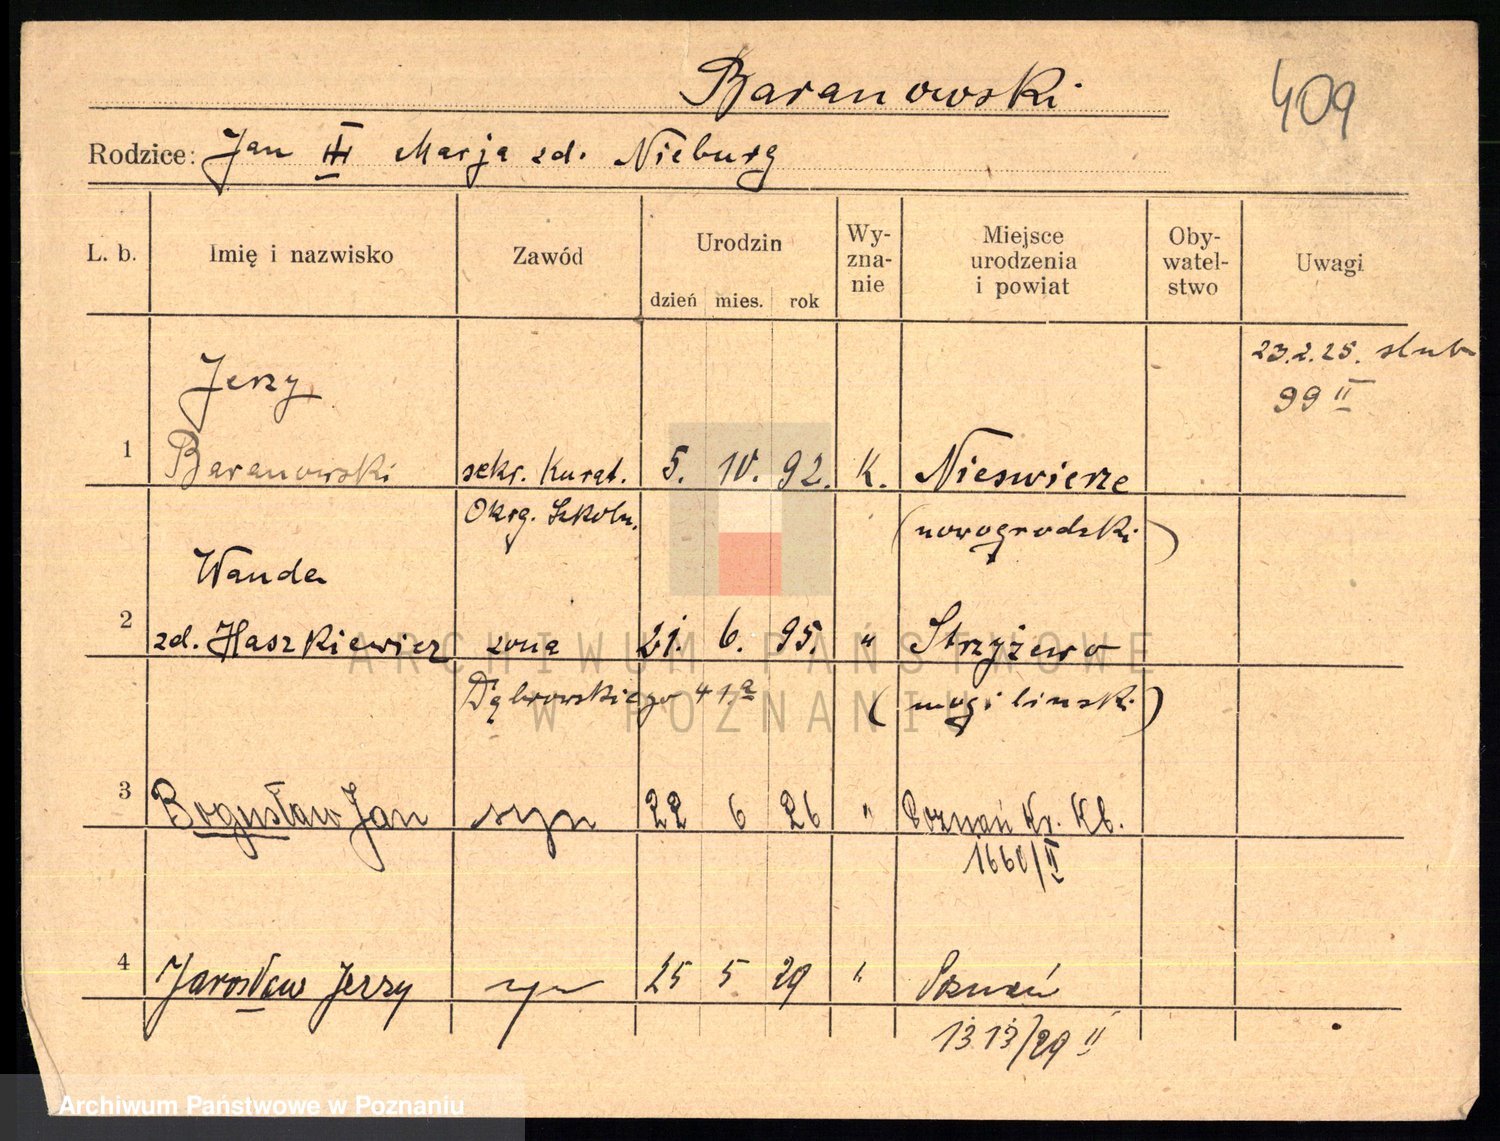 Baranowski
409
Rodzice: Jan III Marja zd. Nieburg
L. b. Imię i nazwisko Zawód Urodzin dzień mies. rok Wy-zna-nie Miejsce urodzenia i powiat Oby-watel-stwo Uwagi
23.2.25. slub
99 II
Jerzy
1 Baranowski sekr. Kurat. 5. IV. 92. K. Nieswierze
Okrg. Szkoln. (nowogrodzki)
Wanda
2 zd. Haszkiewicz zona 21. 6. 95. " Strzyżewo
Dąbrowskiego 41.a (mogilinski)
3 Bogusław Jan syn 22 6 26 " Poznań Kr. Kb.
1660/II
4 Jarosław Jerzy syn 25 5 29 " Poznań
1313/29 II
ARCHIWUM PAŃSTWOWE
W POZNANIU
Archiwum Państwowe w Poznaniu